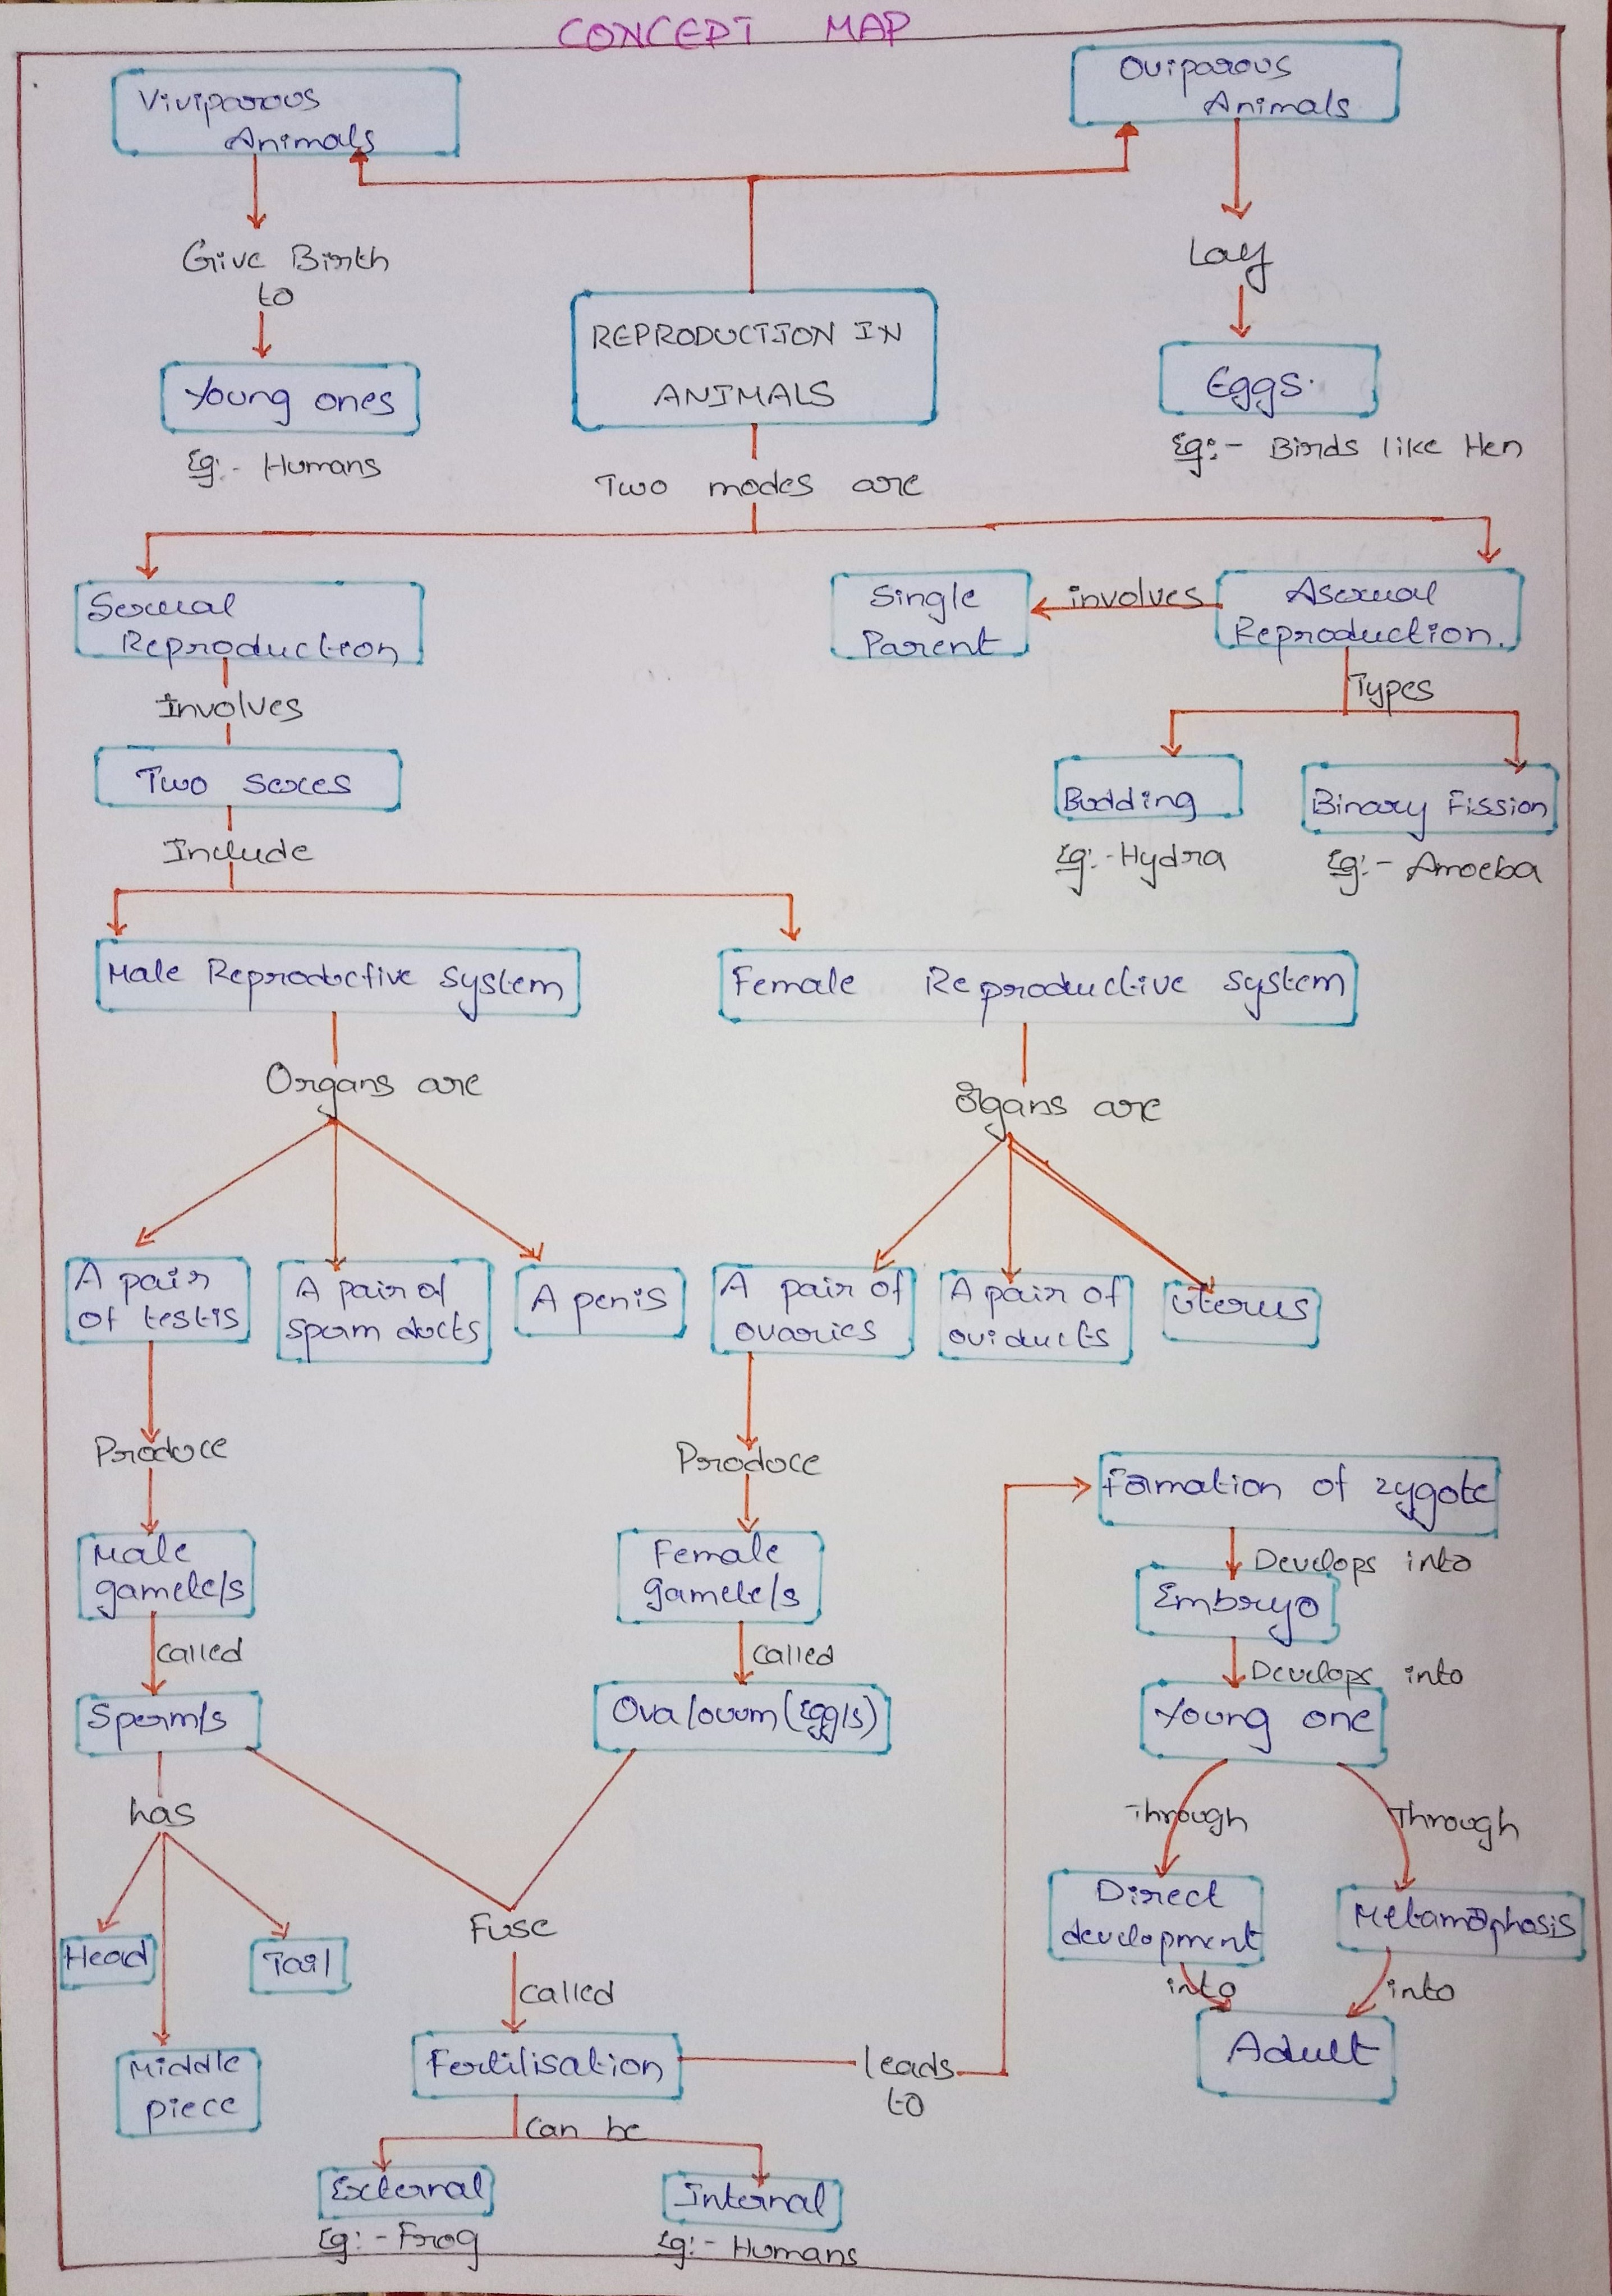 CONCEPT MAP
Viviparous
Animals
Oviparous
Animals
Give Birth
to
Lay
Young ones
Eg:- Humans
REPRODUCTION IN
ANIMALS
Eggs.
Eg:- Birds like Hen
Two modes are
Sexual
Reproduction
Single
Parent
involves
Asexual
Reproduction.
Involves
Types
Two sexes
Budding
Binary Fission
Include
Eg:- Hydra
Eg:- Amoeba
Male Reproductive system
Female Reproductive system
Organs are
Organs are
A pair
of testis
A pair of
sperm ducts
A penis
A pair of
ovaries
A pair of
oviducts
uterus
Produce
Produce
Formation of zygote
Male
gamete/s
Female
gamete/s
Develops into
Embryo
called
called
Develops into
Sperm/s
Ova/ovum (Egg/s)
Young one
has
Through
Through
Head
Tail
Fuse
Direct
development
Metamorphosis
called
into
into
Middle
piece
Fertilisation
leads
to
Adult
Can be
External
Internal
Eg:- Frog
Eg:- Humans